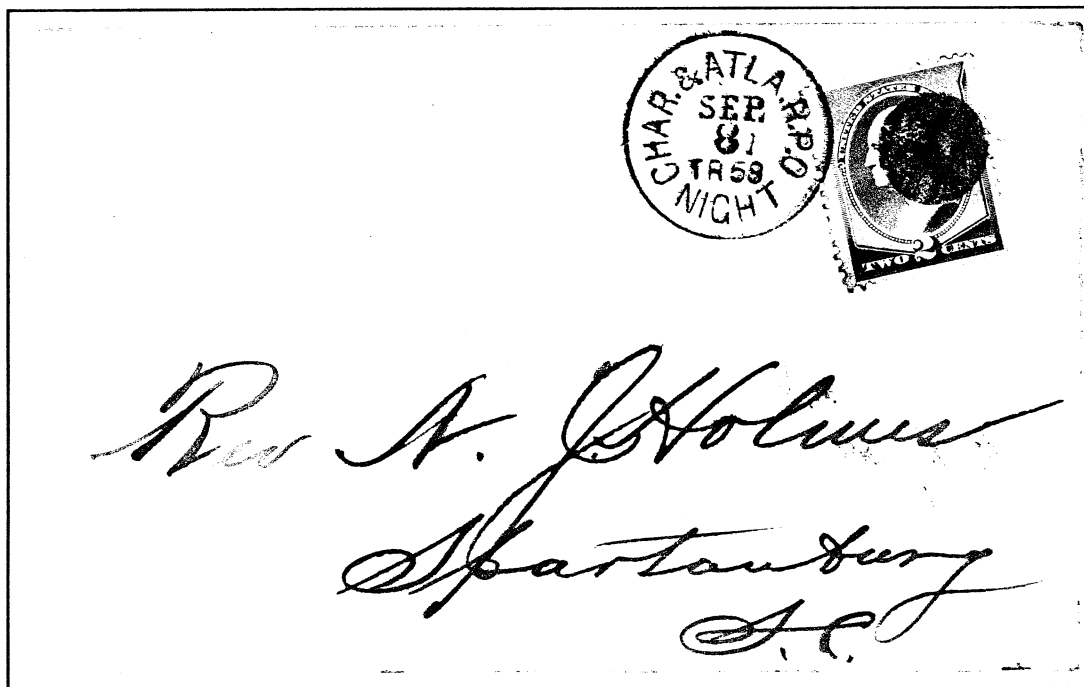 CHAR. & ATLA. R.P.O.
SEP.
8 1
TR 58
NIGHT
UNITED STATES
TWO 2 CENTS
Rev N. J. Holmes
Spartanburg
S. C.